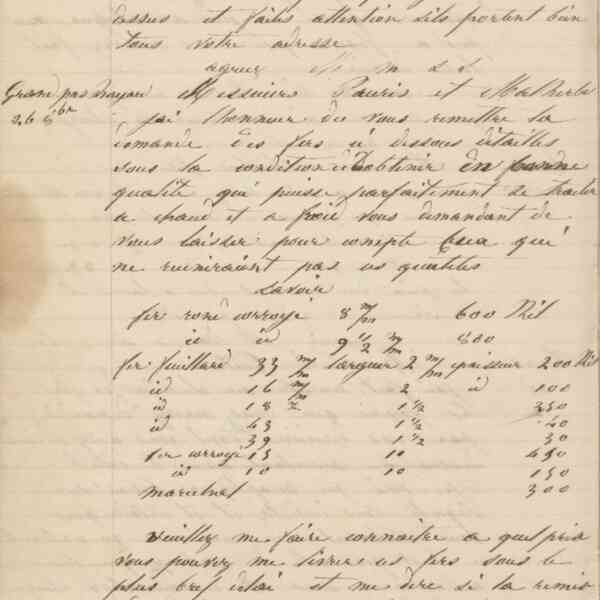 dessus et faites attention sils portent bien
tous votre adresse
agreez M m s s
Grand pas Noyau Messieurs Pauris et Malherbe
26 8bre j'ai l'honneur de vous remettre la
demande des fers ci dessous détaillés
sous la condition d'obtenir en bonne
qualité qui puisse parfaitement se traiter
a chaud et a froid vous demandant de
vous laisser pour compte ceux qui
ne reuniraient pas ces qualités
savoir
fer rond corroyé 8 m/m 600 Kil
id id 9 1/2 m/m 800
fer feuillard 33 m/m largeur 2 m/m epaisseur 200 Kil
id 16 m/m 2 id 100
id 18 1 1/2 350
id 43 1 1/2 40
39 1 1/2 30
fer corroyé 15 10 450
id 10 10 150
marechal 300
veuillez me faire connaitre a quel prix
vous pouvez me livrer ces fers sous le
plus bref délai et me dire si la remise